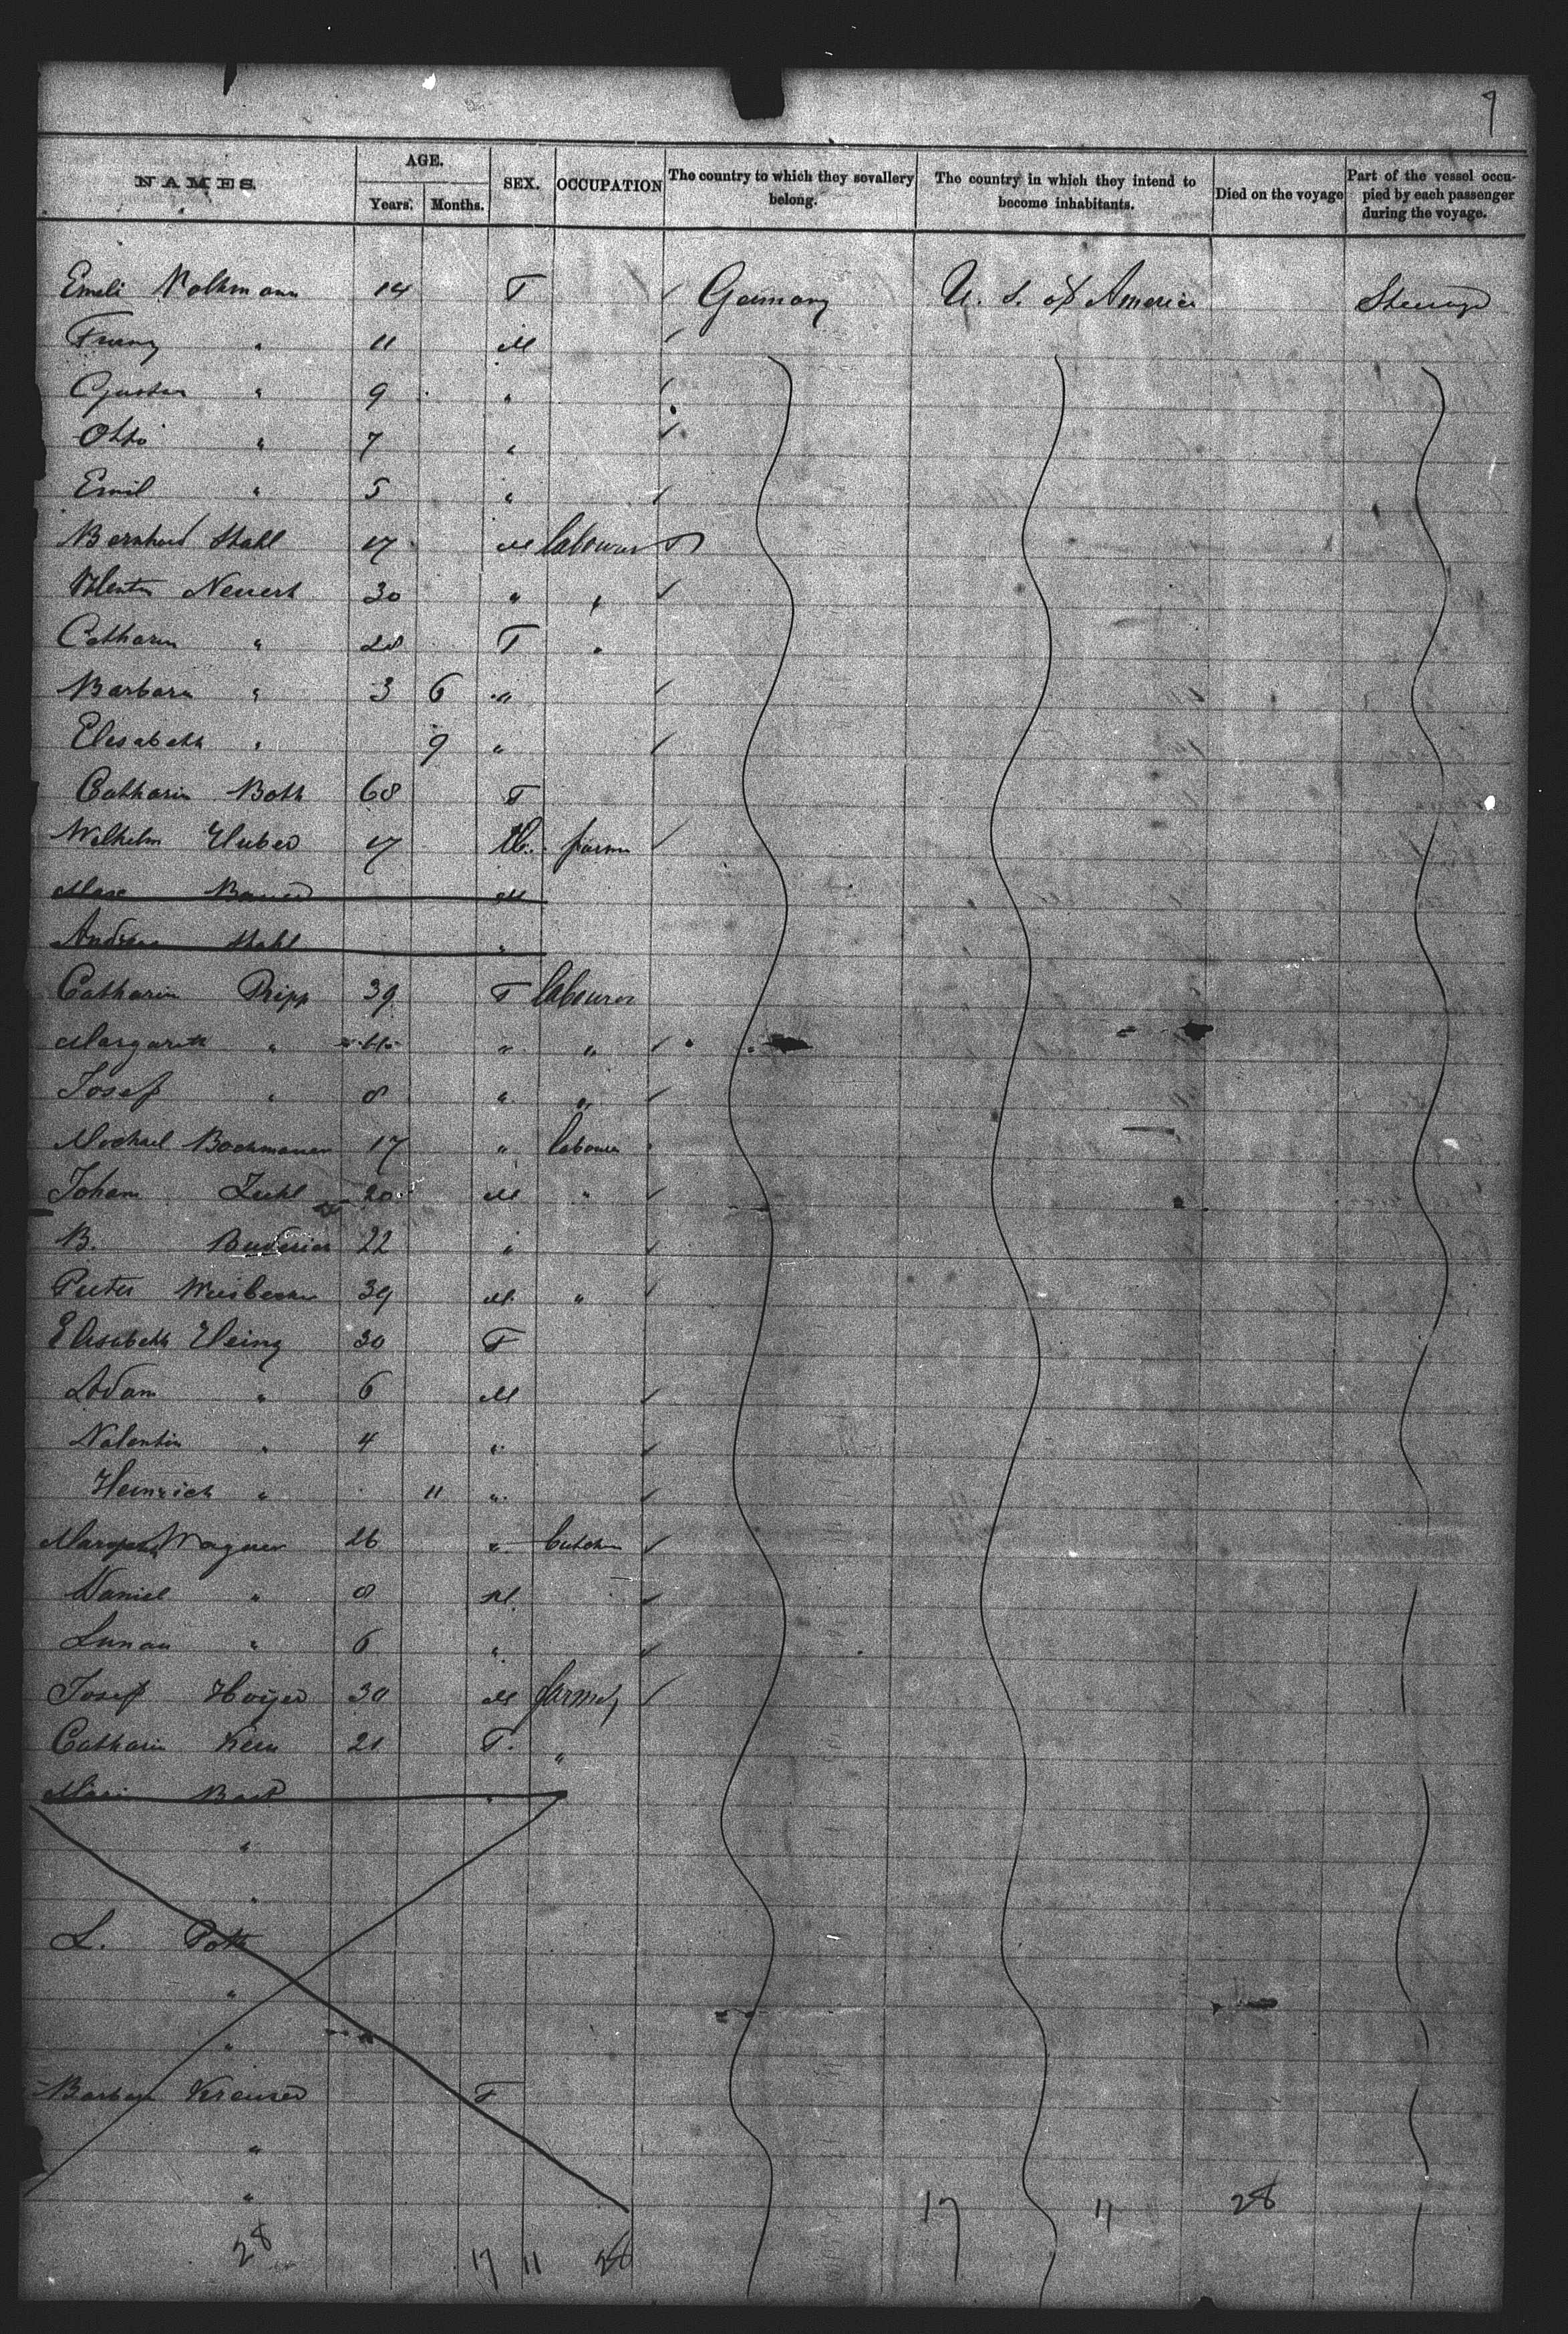 9
NAMES. AGE. Years. Months. SEX. OCCUPATION The country to which they sevallery belong. The country in which they intend to become inhabitants. Died on the voyage Part of the vessel occupied by each passenger during the voyage.
Emeli Volkmann 14 F Germany U. S. of America Steerage
Franz " 11 M
Gustav " 9 "
Otto " 7 "
Emil " 5 "
Bernhard Stahl 17 M labourer
Neuert 30 " "
Catharin " 28 F "
Barbara " 3 6 "
Elesabeth " 9 "
Catharin Both 68 F
Wilhelm Huber 17 M. farm
Max Bauer M
Andreas Stahl "
Catharin Pripp 39 F labourer
Margareth " " "
Josef " 8 " "
Michael Bachmann 17 " labourer
Johann 20 M "
B. 22 "
Peeter 39 M "
Elisabeth Heinz 30 F
Adam " 6 M
Valentin " 4 "
Heinrich " 11 "
Wagner 26 " butcher
Daniel " 8 M.
" 6 "
Josef Hoyer 30 M farmer
Catharin Kern 21 F. "
Mari Bast "
"
"
L. Poth
"
"
Barbara F
"
"
17 11 28
28 17 11 28